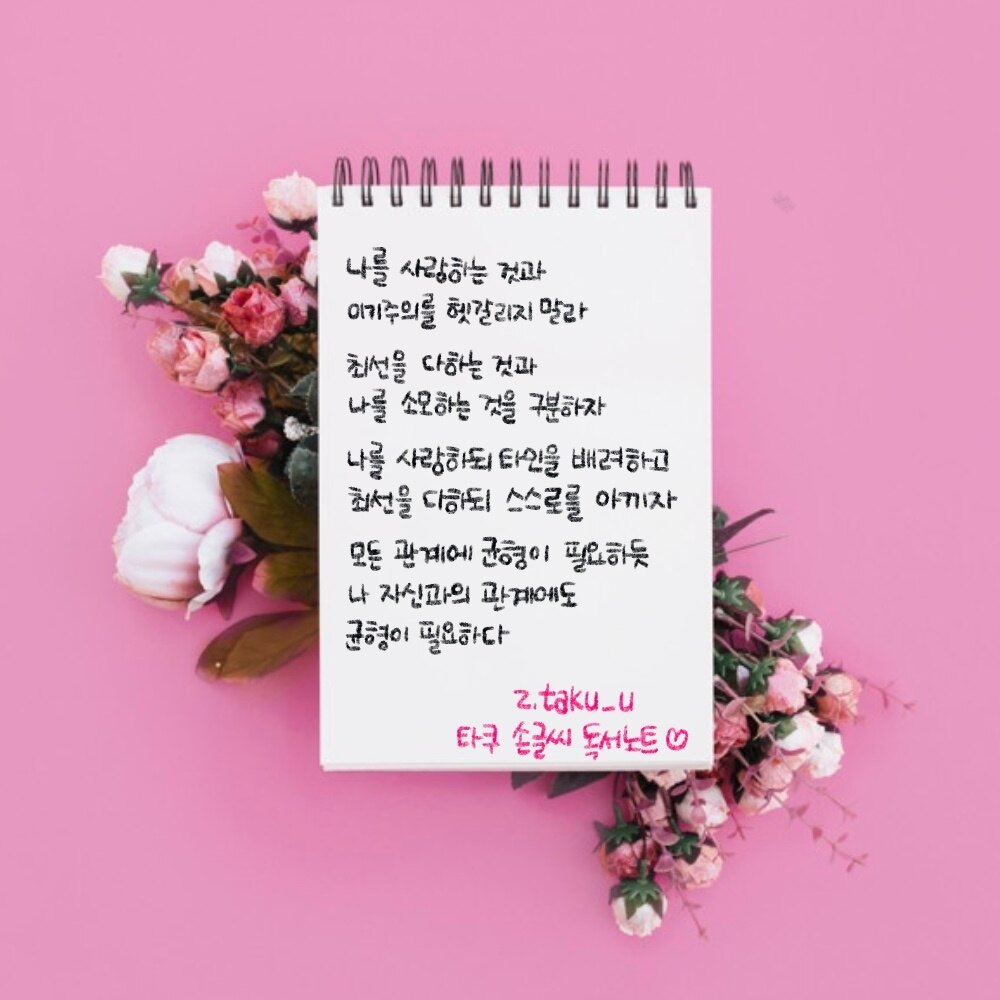 나를 사랑하는 것과
이기주의를 헷갈리지 말라
최선을 다하는 것과
나를 소모하는 것을 구분하자
나를 사랑하되 타인을 배려하고
최선을 다하되 스스로를 아끼자
모든 관계에 균형이 필요하듯
나 자신과의 관계에도
균형이 필요하다
z.taku_u
타쿠 손글씨 독서노트♡